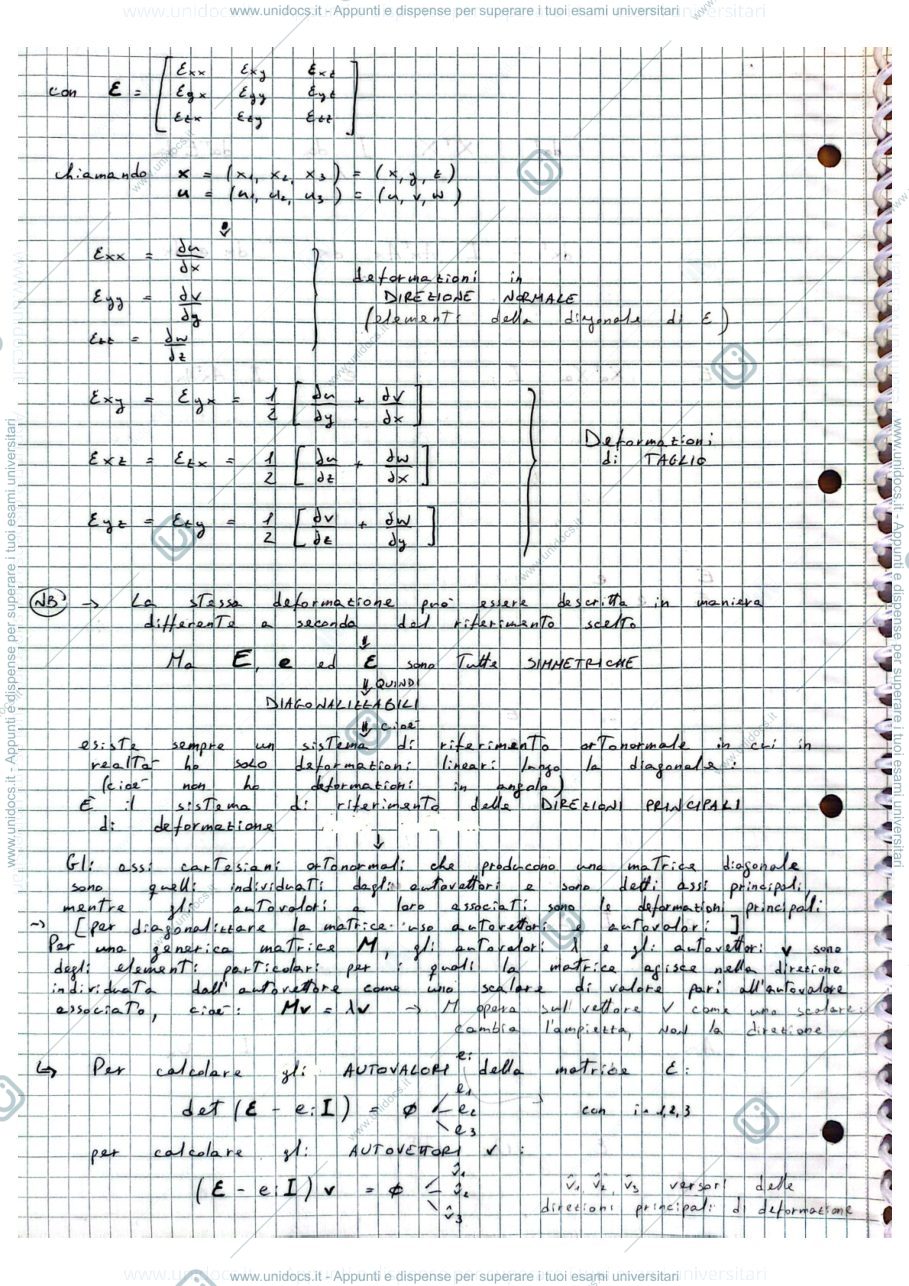 www.unidocs.it - Appunti e dispense per superare i tuoi esami universitari
con ε = [ εxx εxy εxz
εyx εyy εyz
εzx εzy εzz ]
chiamando x = (x1, x2, x3) = (x, y, z)
u = (u1, u2, u3) = (u, v, w)
εxx = ∂u/∂x
εyy = ∂v/∂y
εzz = ∂w/∂z
deformazioni in
DIREZIONE NORMALE
(elementi della diagonale di ε)
εxy = εyx = 1/2 [ ∂u/∂y + ∂v/∂x ]
εxz = εzx = 1/2 [ ∂u/∂z + ∂w/∂x ]
εyz = εzy = 1/2 [ ∂v/∂z + ∂w/∂y ]
Deformazioni
di TAGLIO
NB → La stessa deformazione può essere descritta in maniera
differente a seconda del riferimento scelto
⇓
Ma E, e ed ε sono Tutte SIMMETRICHE
⇓ QUINDI
DIAGONALIZZABILI
⇓ cioè
esiste sempre un sistema di riferimento ortonormale in cui in
realtà ho solo deformazioni lineari lungo la diagonale:
(cioè non ho deformazioni in angolo)
È il sistema di riferimento delle DIREZIONI PRINCIPALI
di deformazione
↓
Gli assi cartesiani ortonormali che producono una matrice diagonale
sono quelli individuati dagli autovettori e sono detti assi principali,
mentre gli autovalori a loro associati sono le deformazioni principali
→ [per diagonalizzare la matrice uso autovettori e autovalori]
Per una generica matrice M, gli autovalori λ e gli autovettori v sono
degli elementi particolari per i quali la matrice agisce nella direzione
individuata dall'autovettore come uno scalare di valore pari all'autovalore
associato, cioè: Mv = λv → M opera sul vettore v come uno scalare:
cambia l'ampiezza, NON la direzione
↳ Per calcolare gli AUTOVALORI ei della matrice ε:
det (ε - ei I) = ∅ e1 e2 e3 con i = 1,2,3
per calcolare gli AUTOVETTORI v :
(ε - ei I) v = ∅ v̂1 v̂2 v̂3
v̂1, v̂2, v̂3 versori delle
direzioni principali di deformazione
www.unidocs.it - Appunti e dispense per superare i tuoi esami universitari